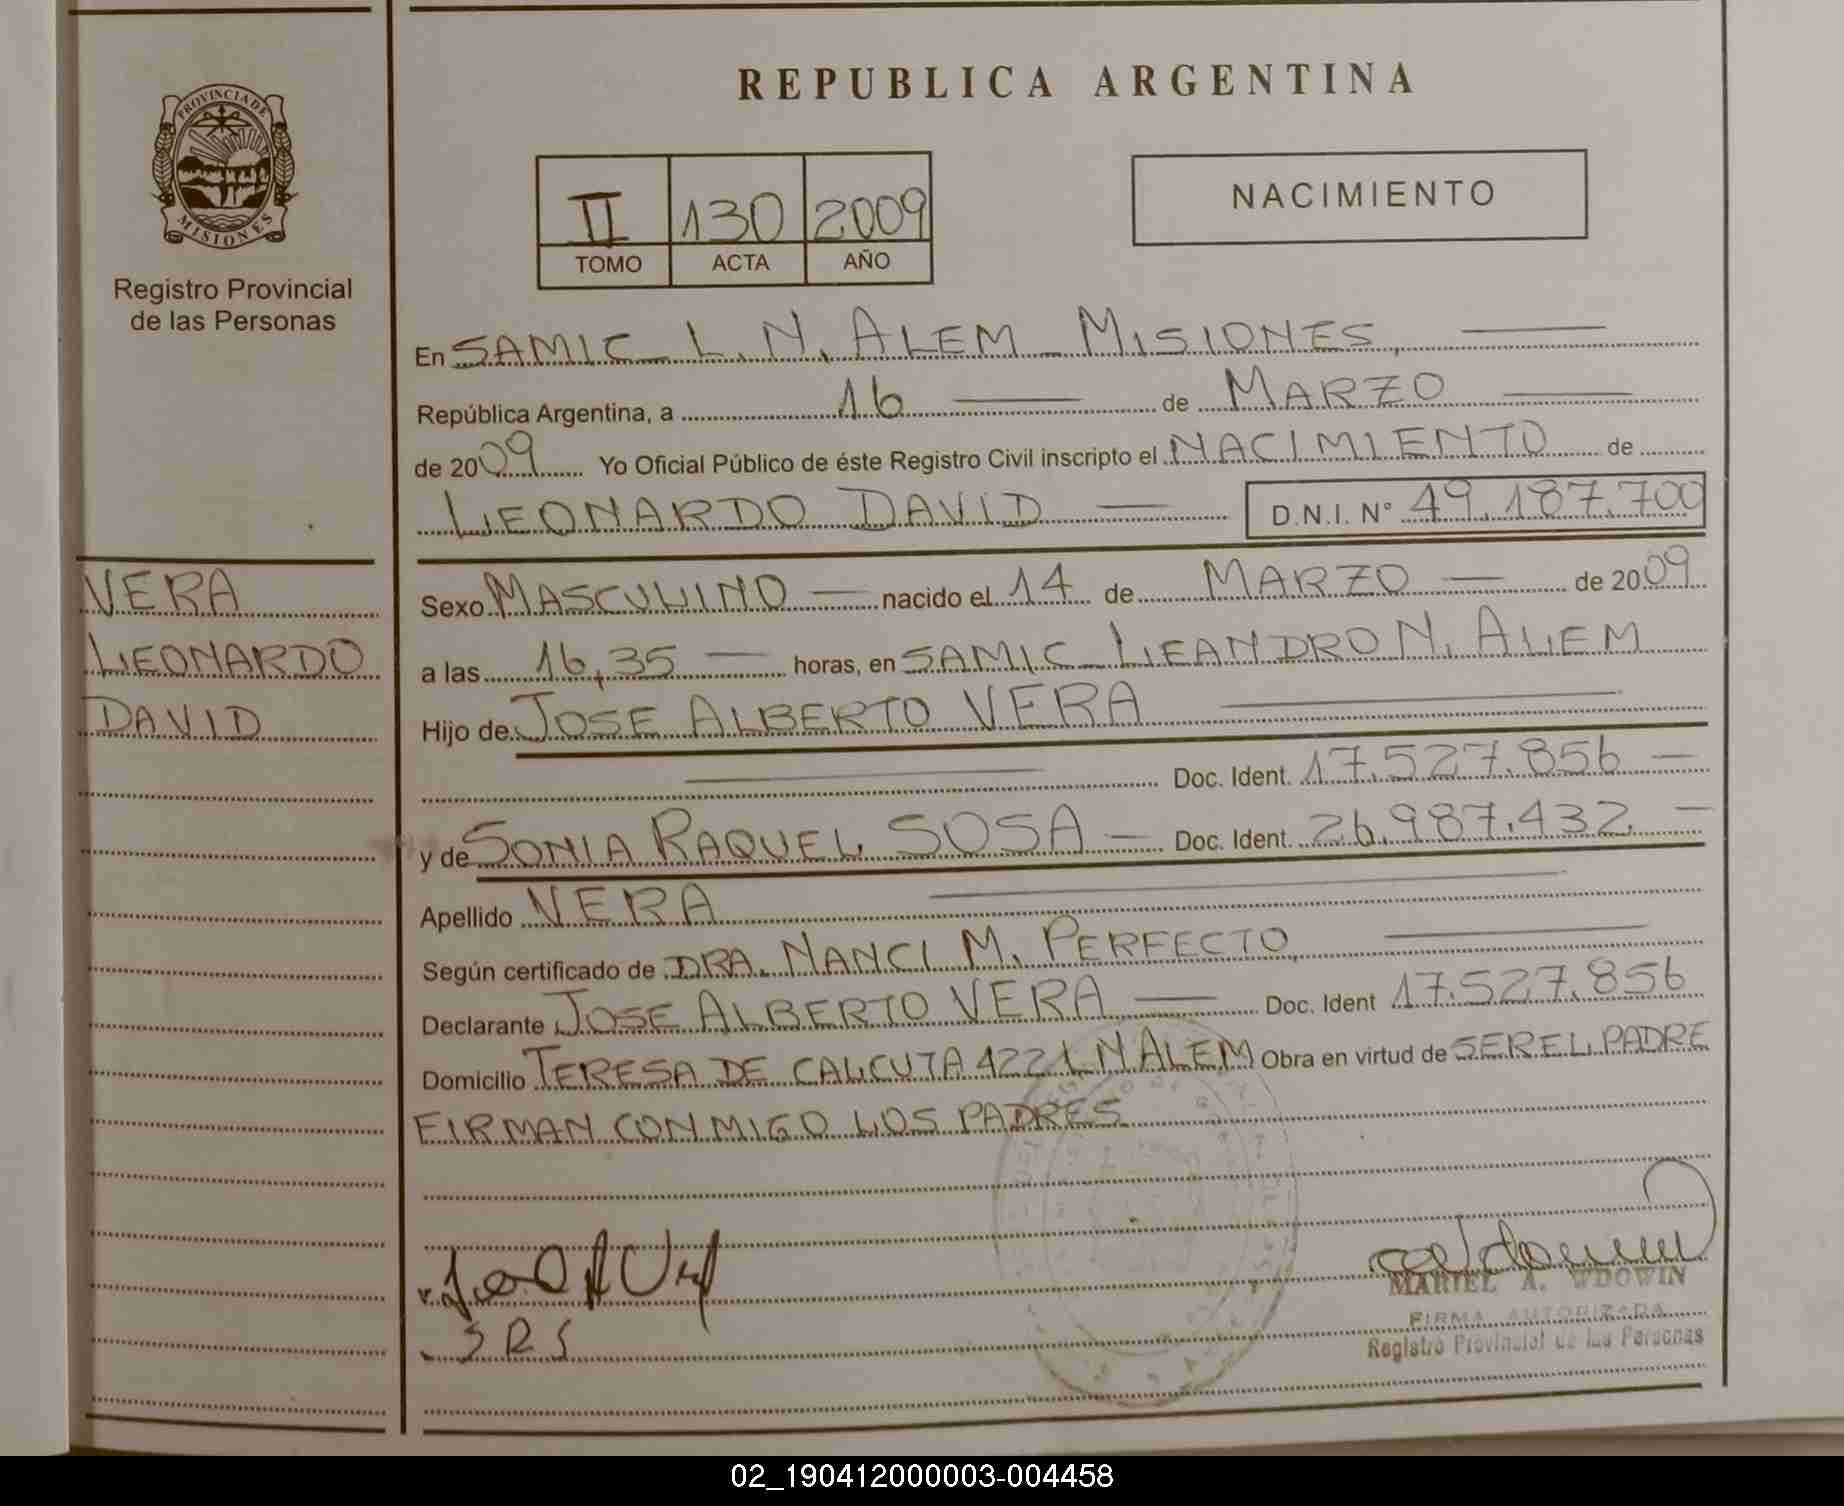 PROVINCIA DE
MISIONES
Registro Provincial
de las Personas
REPUBLICA ARGENTINA
II 130 2009
TOMO ACTA AÑO
NACIMIENTO
En SAMIC - L. N. ALEM - MISIONES,
República Argentina, a 16 de MARZO
de 2009 Yo Oficial Público de éste Registro Civil inscripto el NACIMIENTO de
LEONARDO DAVID D.N.I. N° 49.187.700
VERA
LEONARDO
DAVID
Sexo MASCULINO nacido el 14 de MARZO de 2009
a las 16,35 horas, en SAMIC - LEANDRO N. ALEM
Hijo de JOSE ALBERTO VERA
Doc. Ident. 17.527.856
y de SONIA RAQUEL SOSA Doc. Ident. 26.987.432
Apellido VERA
Según certificado de DRA. NANCI M. PERFECTO,
Declarante JOSE ALBERTO VERA Doc. Ident 17.527.856
Domicilio TERESA DE CALCUTA 422 L N ALEM Obra en virtud de SER EL PADRE
FIRMAN CONMIGO LOS PADRES
SRS
MARIEL A. WDOWIN
FIRMA AUTORIZADA
Registro Provincial de las Personas
02_190412000003-004458